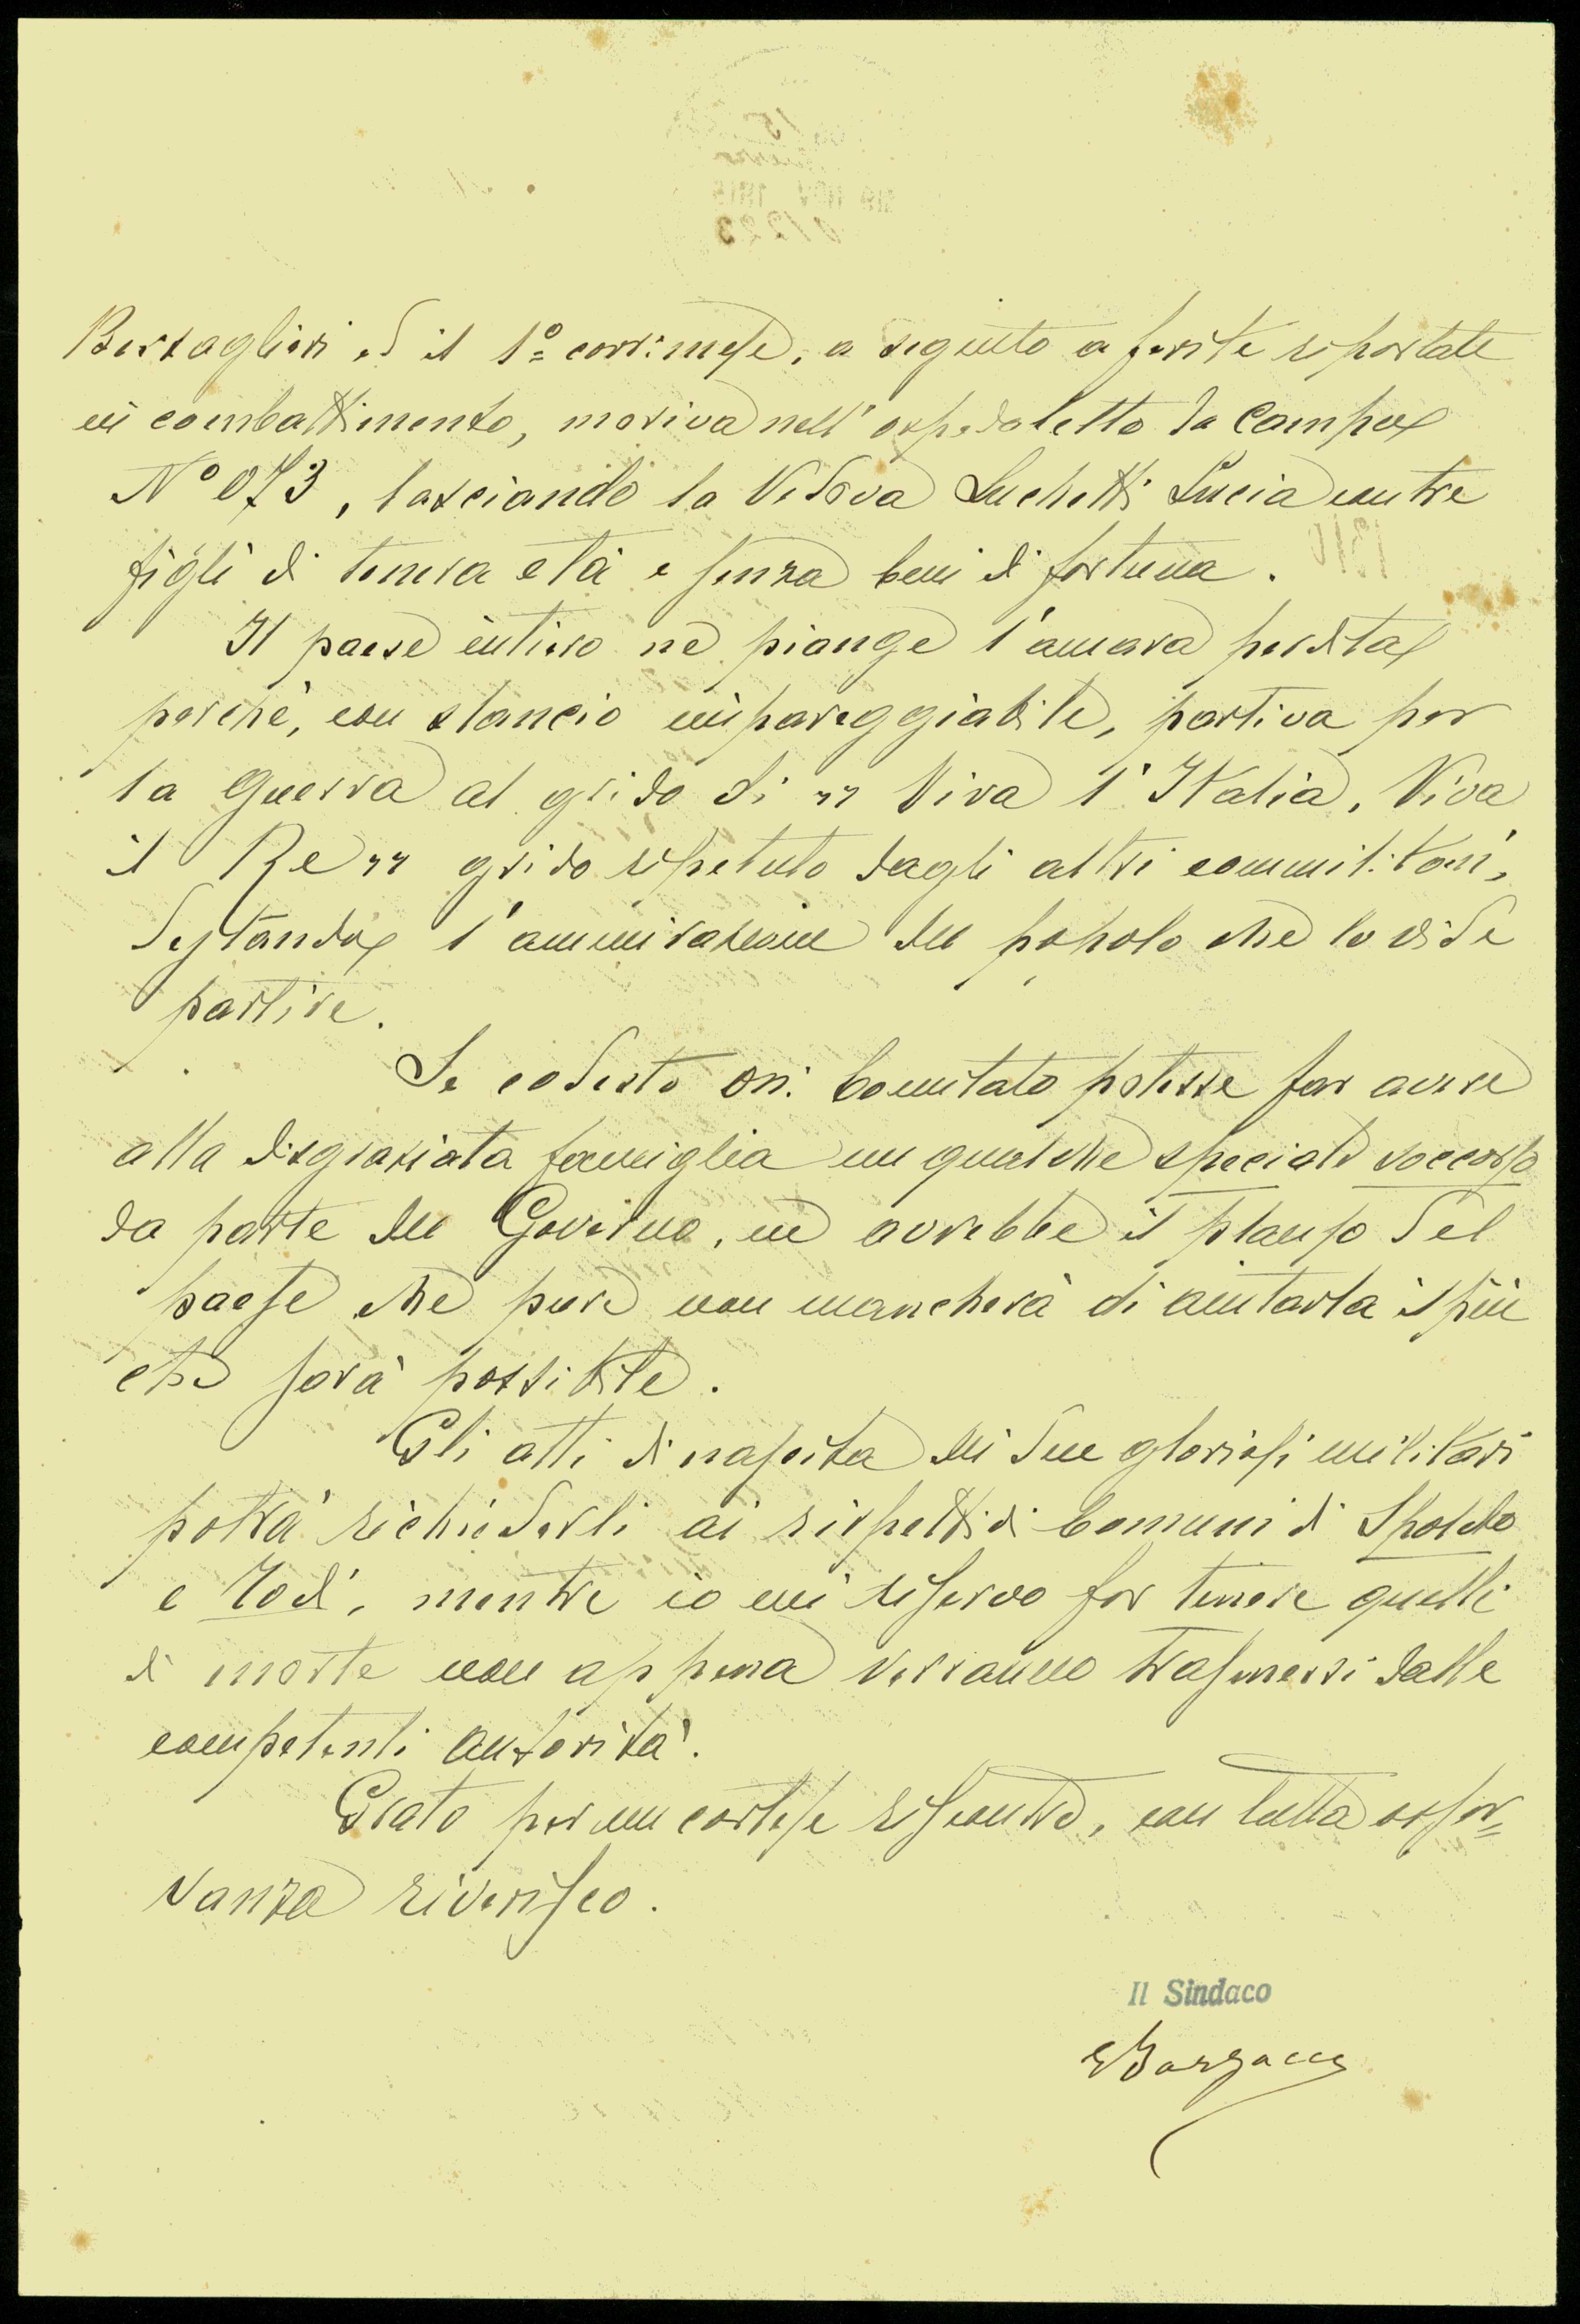 Bersaglieri ed il 1º corr: mese, a seguito a ferite riportate
in combattimento, moriva nell'ospedaletto da Campo
Nº 073, lasciando la Vedova Luchetti Lucia con tre
figli di tenera età e senza beni di fortuna.
Il paese intiero ne piange l'amara perdita
perchè, con slancio impareggiabile, partiva per
la Guerra al grido di "Viva l'Italia, Viva
il Re" grido ripetuto dagli altri commilitoni,
destando l'ammirazione del popolo che lo vide
partire.
Se codesto On. Comitato potesse far avere
alla disgraziata famiglia un qualche speciale soccorso
da parte del Governo, ne avrebbe il plauso del
paese che pure non mancherà di aiutarla il più
che sarà possibile.
Gli atti di nascita dei due gloriosi militari
potrà richiederli ai rispettivi Comuni di Spoleto
e Todi, mentre io mi riservo far tenere quelli
di morte non appena verranno trasmessi dalle
competenti autorità.
Grato per un cortese riscontro, con tutta osser=
vanza riverisco.
Il Sindaco